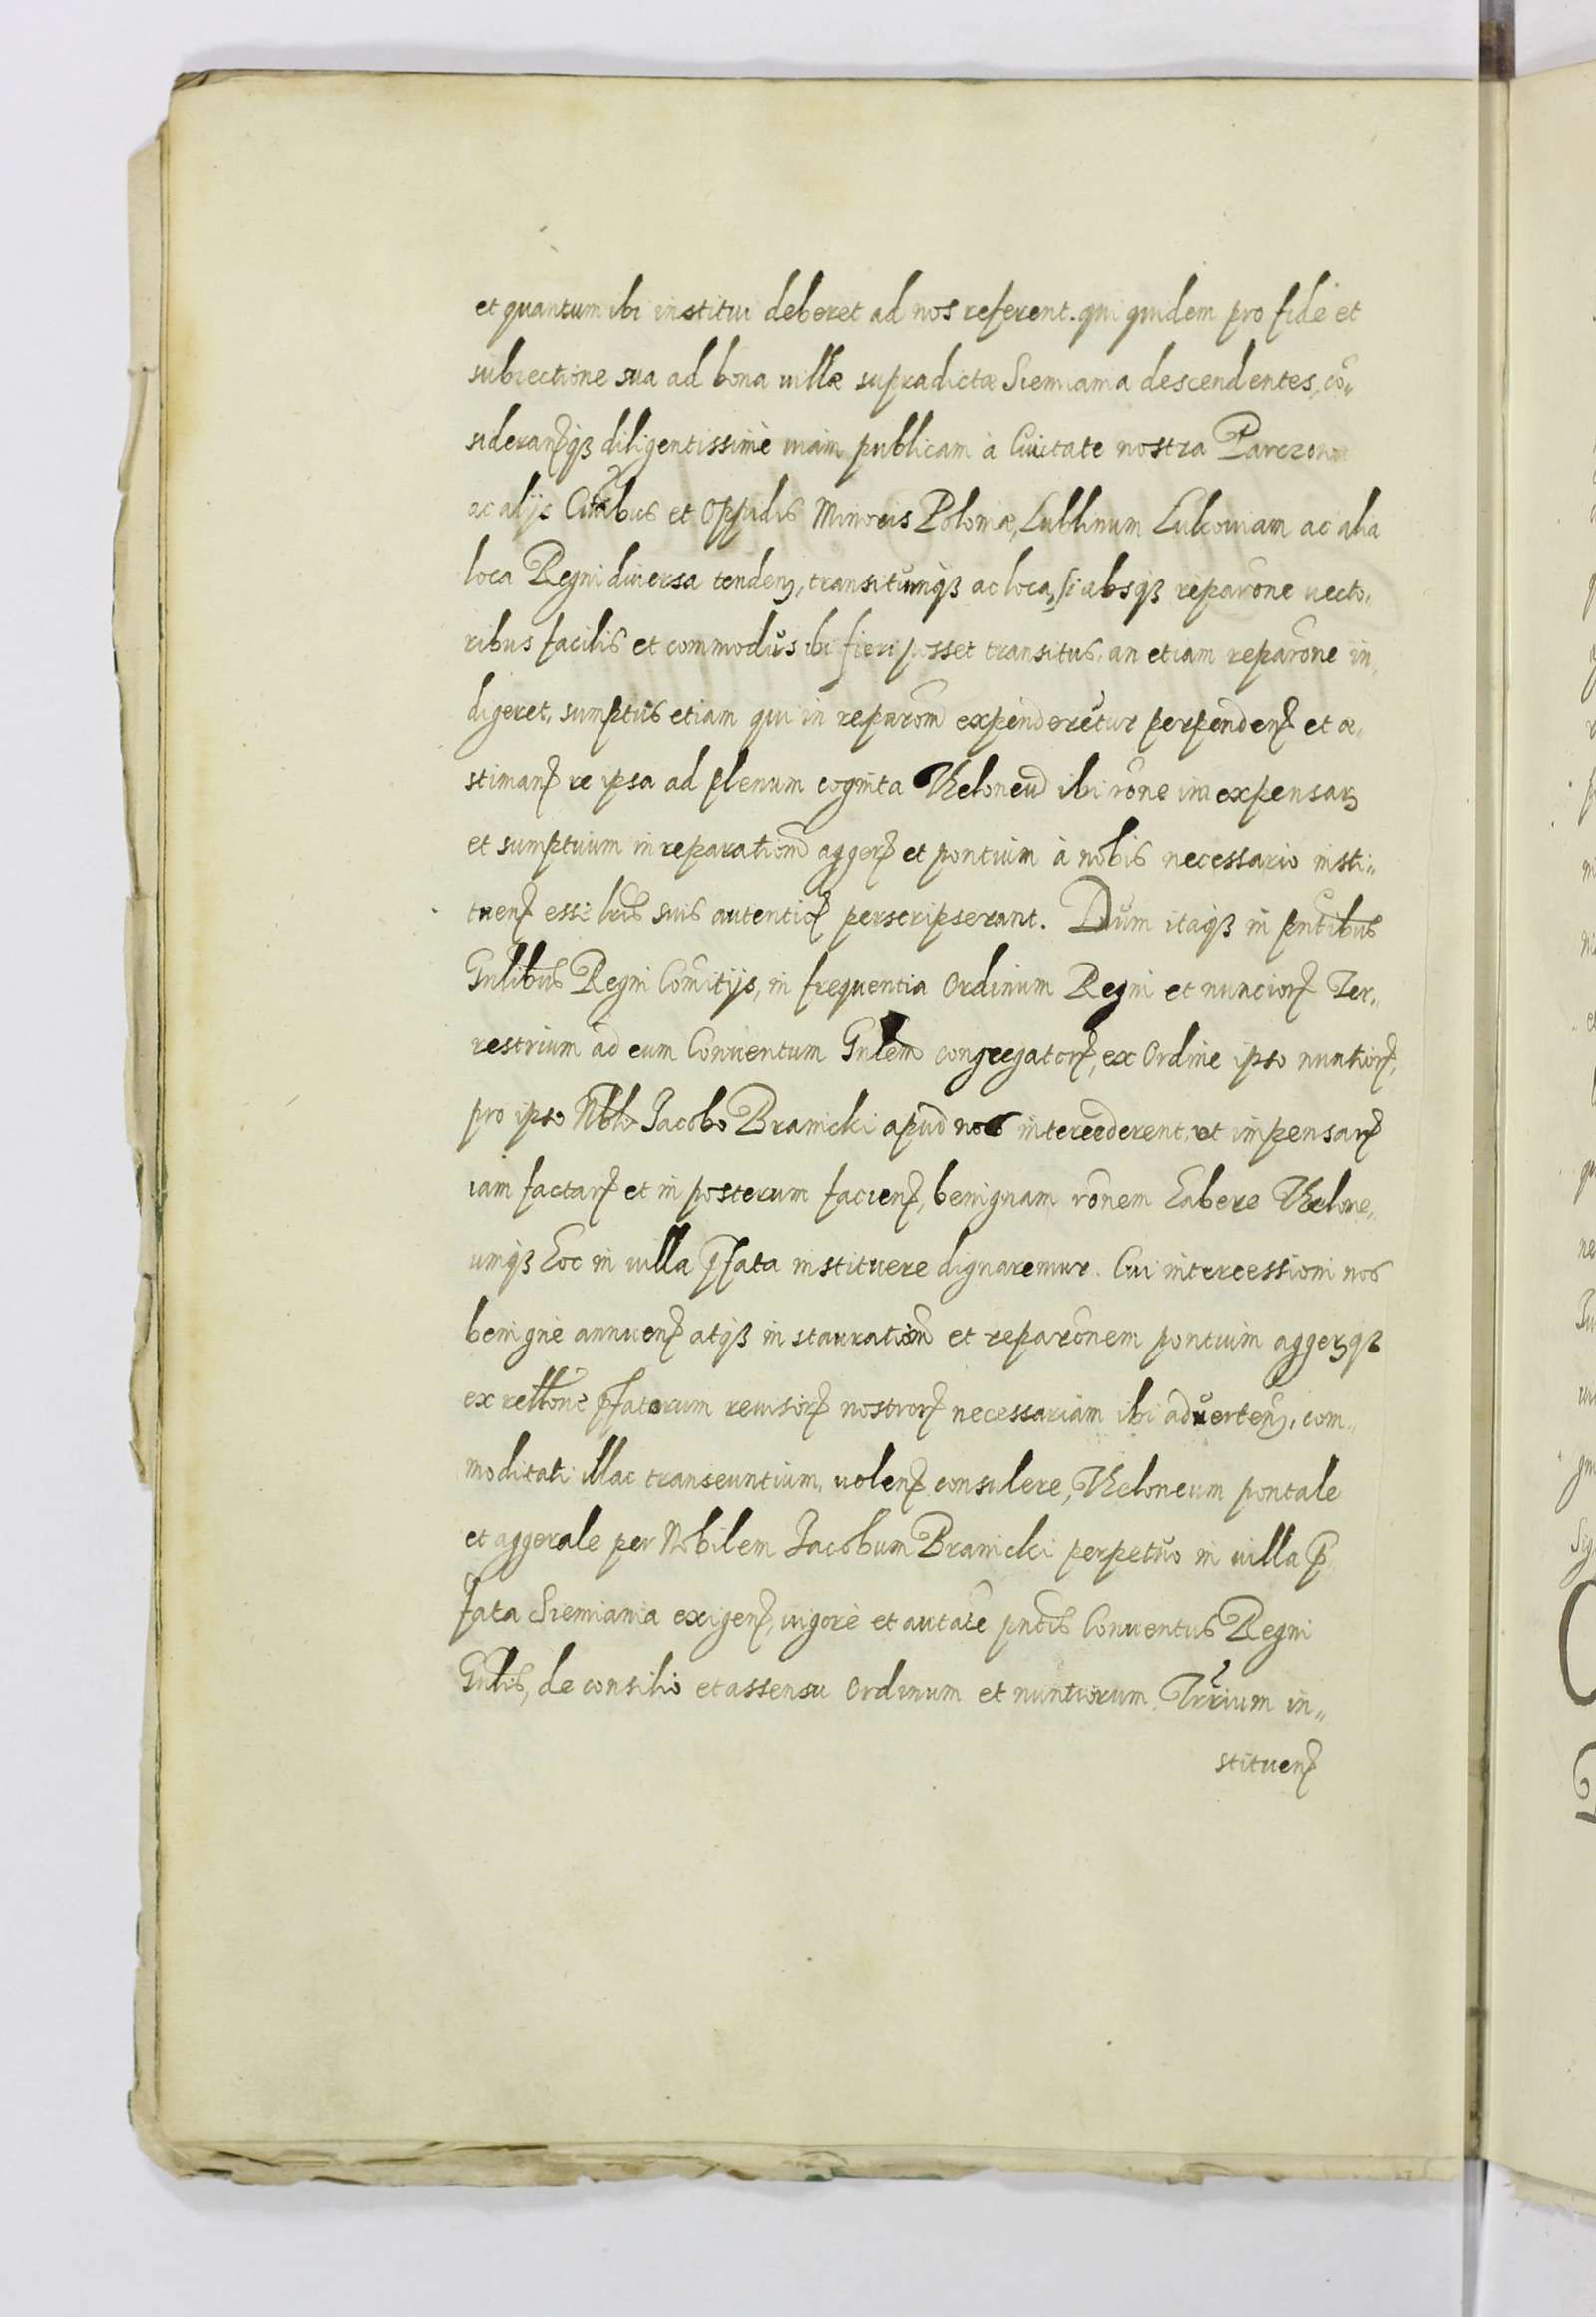 et quantum ibi institui deberet ad nos referent. qui quidem pro fide et
subiectione sua ad bona villæ supradictæ Siemiania descendentes, cō„
sideranꝭqꝫ diligentissimè viam publicam à Civitate nostra Parczoviæ
ac alijs Citābus et Oppidis Minoris Poloniæ, Lublinum Lukoviam ac alia
loca Regni diversa tendenꝭ, transitūmqꝫ ac loca, si absqꝫ reparōne vecto,
ribus facilis et commodus ibi fieri posset transitus, an etiam reparōne in,
digeret, sumptūs etiam qui in reparōm expenderētur perpendenꝭ et æ,
stimanꝭ re ipsa ad plenum cognita Theloneū ibi rōne expensarꝫ
et sumptuum in reparatiōm aggerꝭ et pontium à nobis necessario insti„
tuenꝭ esse lrīs suis autenticꝭ perscripserant. Dum itaqꝫ in pn̄tibus
Gn̄libus Regni Comitijs, in frequentia Ordinum Regni et nunciorꝭ Ter„
restrium ad eum Conventum Gn̄lem congregatorꝭ, ex Ordine ipso nuntiorꝭ,
pro ipso Nbli Jacobo Branicki apud nos intercederent, ut impensarꝭ
iam factarꝭ et in posterum facienꝭ, benignam rōnem habere Thelone,
umqꝫ hoc in villa p̄fata instituere dignaremur. Cui intercessioni nos
benignè annuenꝭ atqꝫ instauratiōm et reparōnem pontium aggerꝫqꝫ
ex rellōne p̄fatorum revisorꝭ nostrorꝭ necessariam ibi advertenꝭ, com„
moditati illac transeuntium, volenꝭ consulere, Theloneum pontale
et aggerale per Nobilem Jacobum Branicki perpetūo in villa p̄
fata Siemiania exigenꝭ, vigore et autāte pn̄tis Conventus Regni
Gn̄lis, de consilio et assensu Ordinum et nuntiorum Trr̄ium in„
stituenꝭ